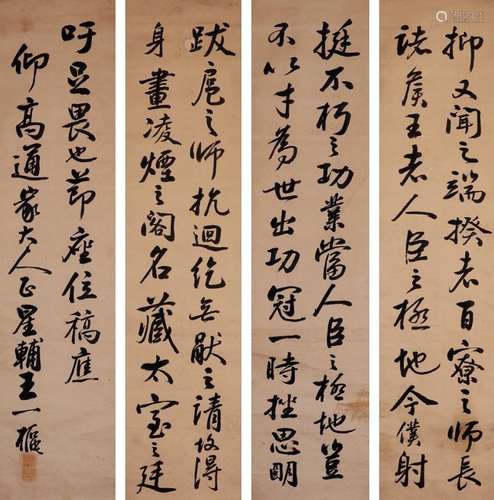 抑又聞之端揆者百寮之師長
諸侯王者人臣之極地今僕射
挺不朽之功業當人臣之極地豈
不以才為世出功冠一時挫思明
跋扈之師抗迴紇無猒之請故得
身畫凌煙之閣名藏太室之廷
吁足畏也節座位稿應
仰高通家大人正星輔王一樞